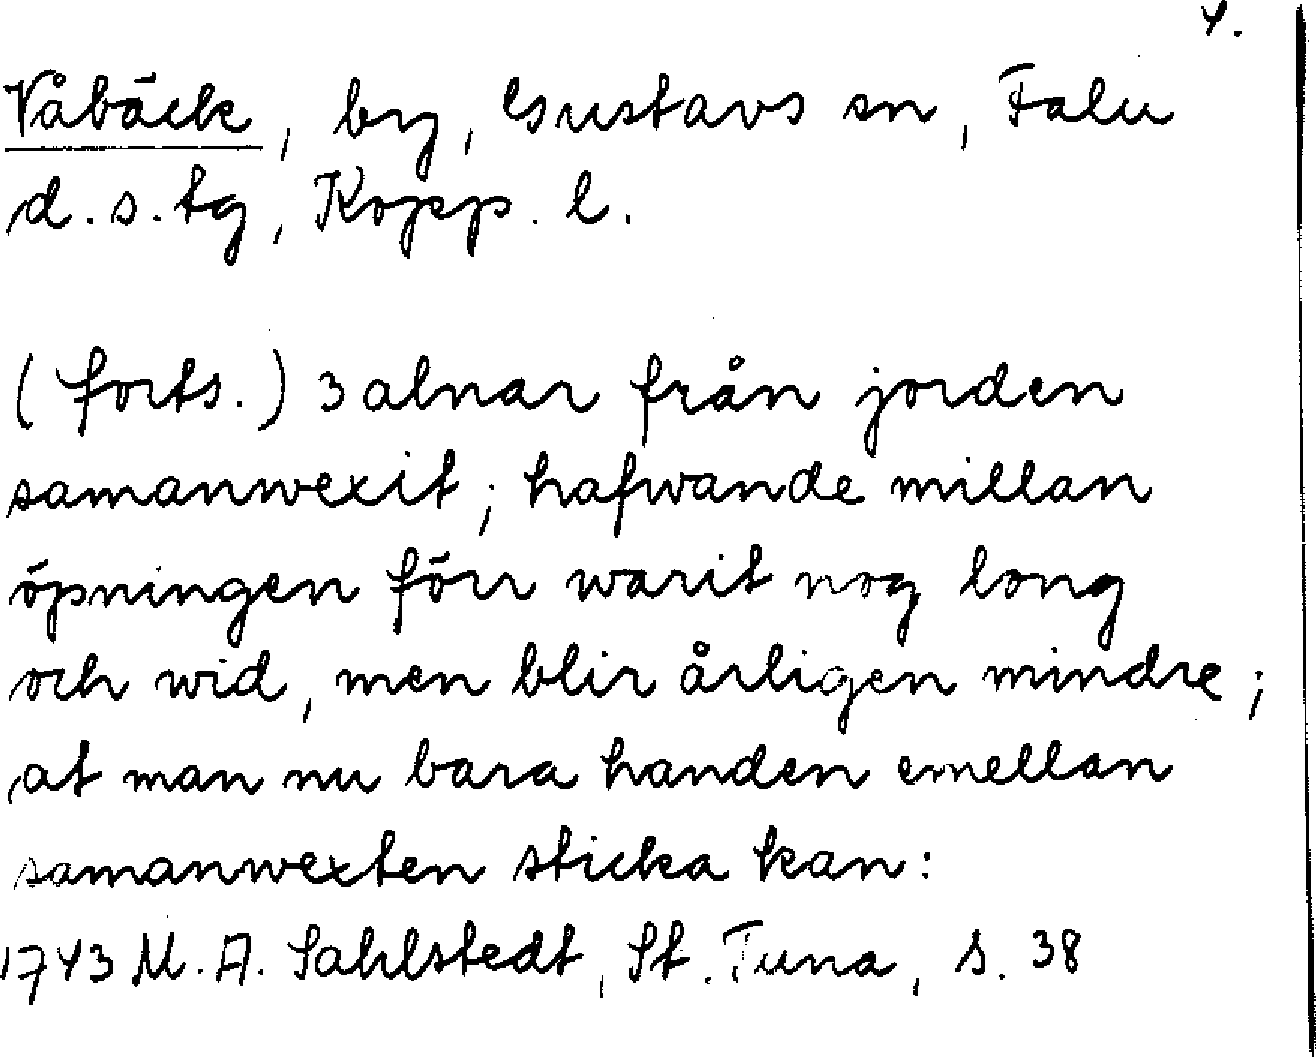 4.
Våbäck, by, Gustavs sn, Falu
d.s.tg, Kopp. l.
(forts.) 3 alnar från jorden
samanwexit; hafwande millan
öpningen förr warit nog long
och wid, men blir årligen mindre;
at man nu bara handen emellan
samanwexten sticka kan:
1743 M. A. Sahlstedt, St. Tuna, s. 38